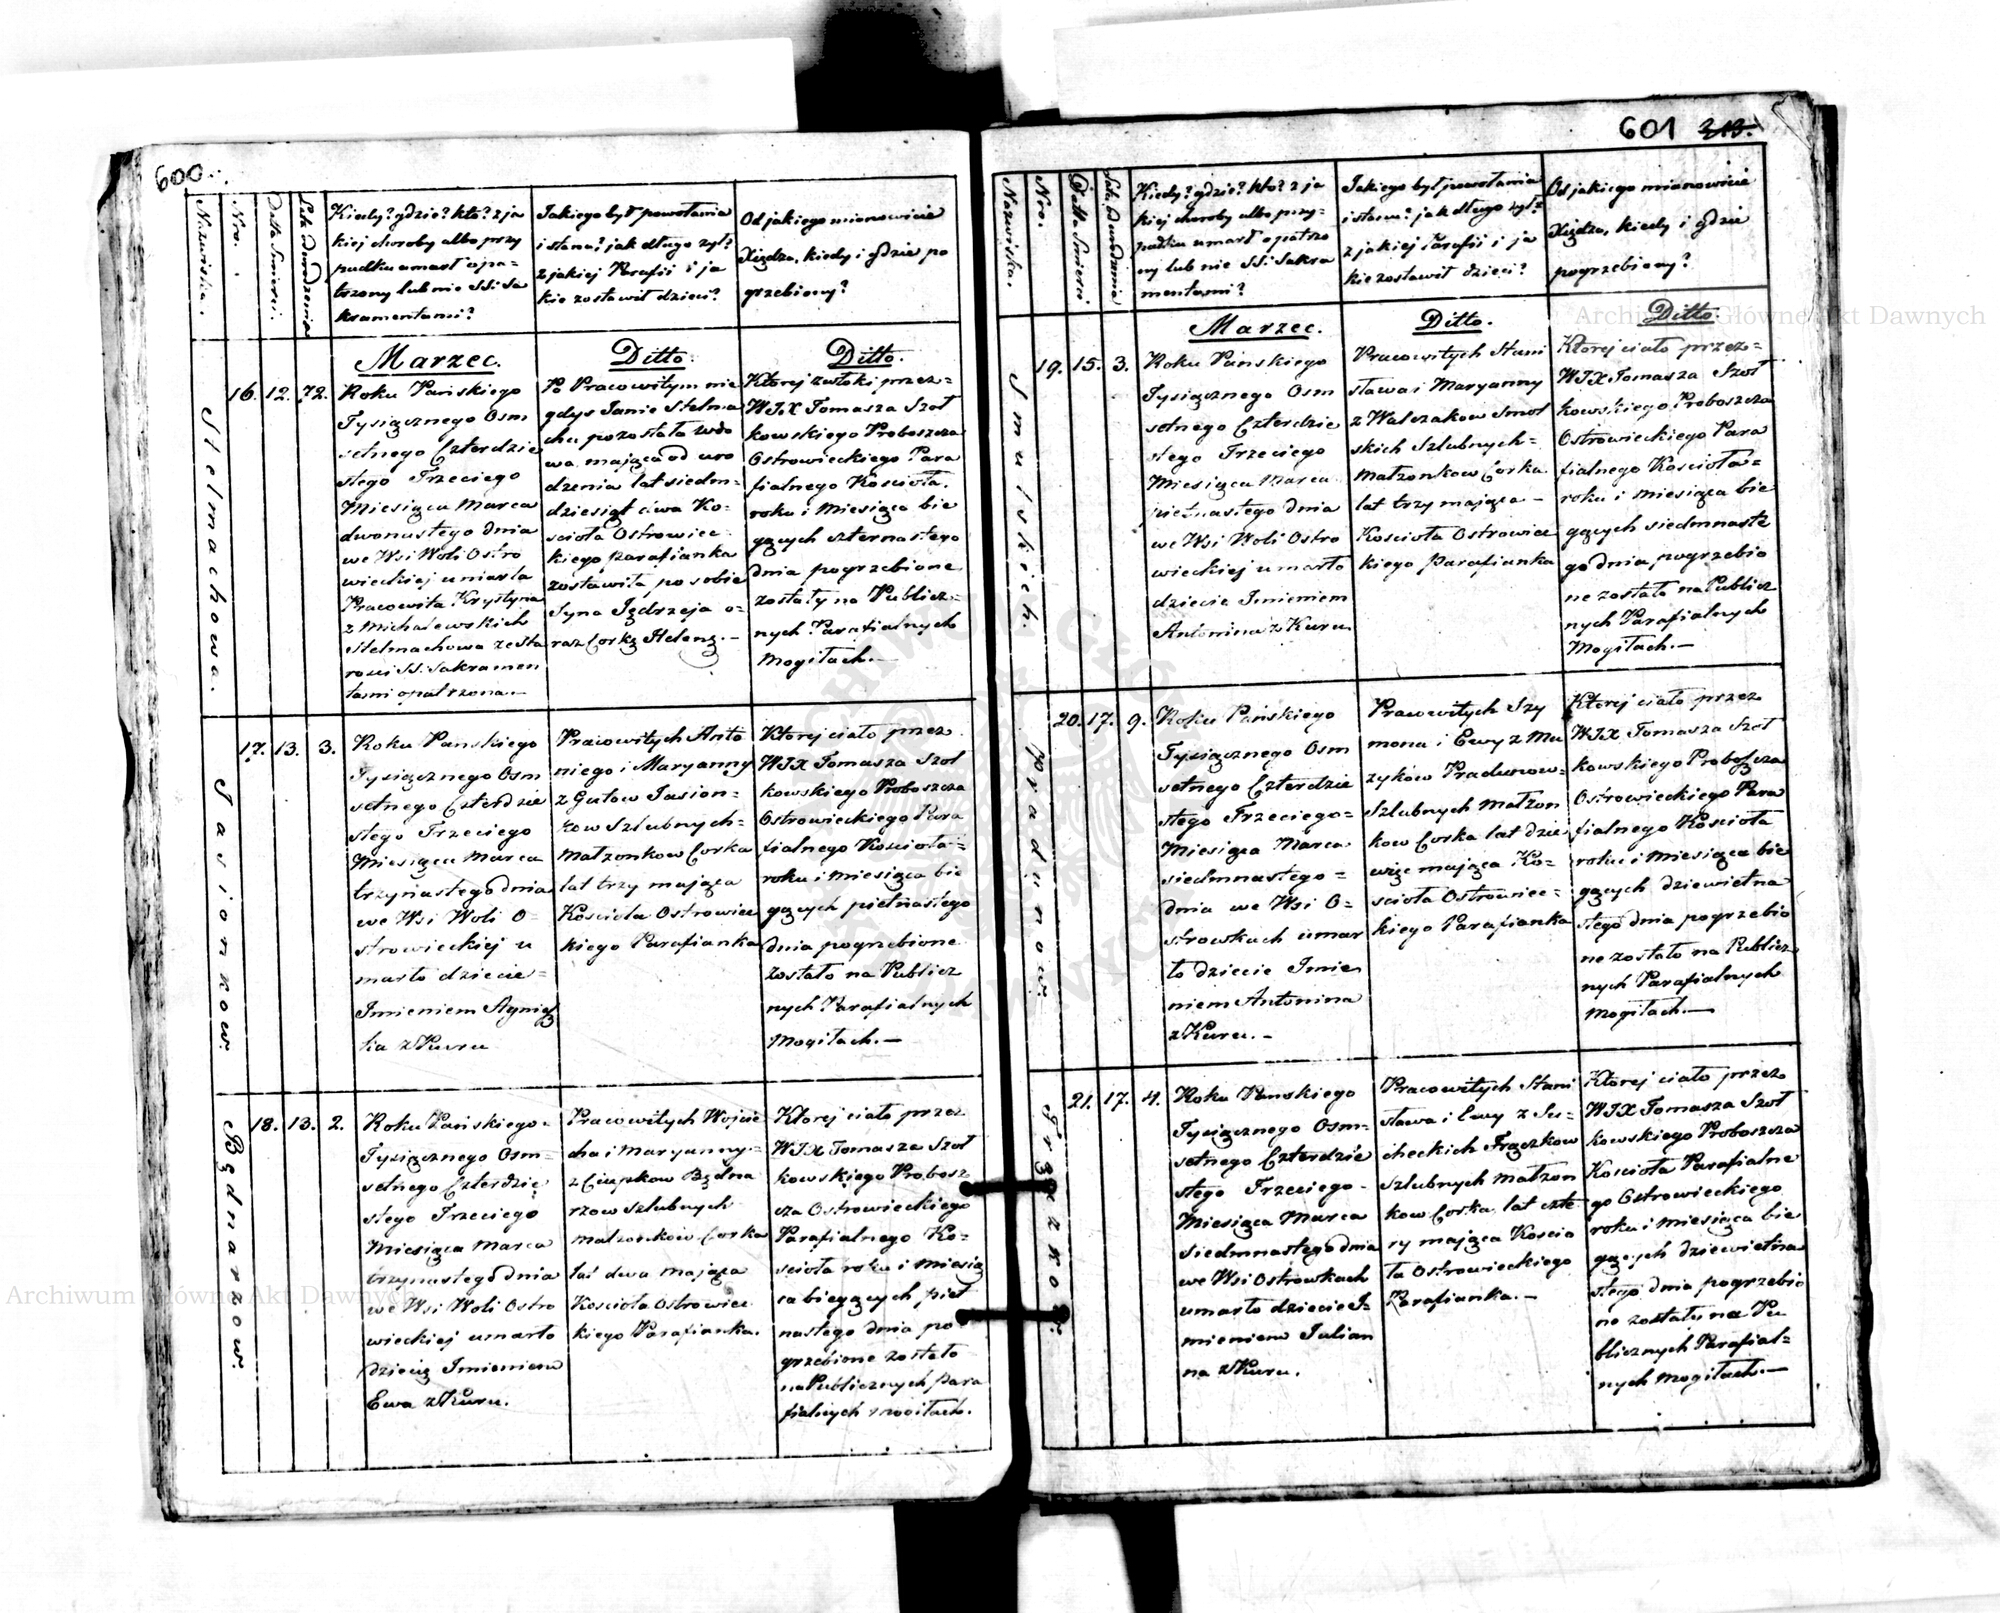 600
Nazwiska.
Nro.
Datta Śmierci.
Lata Urodzenia
Kiedy? gdzie? kto? z ja
kiej choroby albo przy
padku umarł opa=
trzony lub nie SS: Sa
kramentami?
Jakiego był powołania
i stanu? jak długo żył?
z jakiej Parafii i ja
kie zostawił dzieci?
Od jakiego mianowicie
Xiędza, kiedy i gdzie po
grzebiony?
Marzec.
Ditto.
Ditto.
Stelmachowa.
16.
12.
72.
Roku Pańskiego
Tysiącznego Osm
setnego Czterdzie
stego Trzeciego
Miesiąca Marca
dwunastego dnia
we Wsi Woli Ostro
wieckiej umarła
Pracowita Krystyna
z Michalewskich
Stelmachowa ze Sta
rości SS. Sakramen
tami opatrzona.—
Po Pracowitym nie
gdys Janie Stelma
chu pozostała wdo
wa mająca od uro
dzenia lat siedm=
dziesiąt dwa Ko=
scioła Ostrowiec=
kiego parafianka
zostawiła po sobie
Syna Jędrzeja o=
raz Corkę Helenę.—
Ktorej zwłoki przez=
WJX Tomasza Szoł
kowskiego Proboszcza
Ostrowieckiego Para
fialnego Kościoła.
roku i Miesiąca bie
gących czternastego
dnia pogrzebione
zostały na Publicz=
nych Parafialnych
Mogiłach.—
Jasionkow.
17.
13.
3.
Roku Panskiego
Tysiącznego Osm
setnego Czterdzie
stego Trzeciego
Miesiąca Marca
trzynastego dnia
we Wsi Woli O=
strowieckiej u
marło dziecie=
Imieniem Agniesz
ka z Kuru
Pracowitych Anto
niego i Maryanny
z Gutow Jasion=
kow Szlubnych=
Małzonkow Corka
lat trzy mająca
Kościoła Ostrowiec
kiego Parafianka
Ktorej ciało przez
WJX Tomasza Szoł
kowskiego Proboszcza
Ostrowieckiego Para
fialnego Kościoła=
roku i Miesiąca bie
gących pietnastego
dnia pogrzebione
zostało na Publicz
nych Parafialnych
Mogiłach.—
Bednarzow.
18.
13.
2.
Roku Pańskiego=
Tysiącznego Osm=
setnego Czterdzie
stego Trzeciego
Miesiąca Marca
trzynastego dnia
we Wsi Woli Ostro
wieckiej umarło
dziecię Imieniem
Ewa z Kuru.
Pracowitych Wojcie
cha i Maryanny=
z Ciupkow Będna
rzow szlubnych
małzonkow Corka
lat dwa mająca
Kościoła Ostrowiec
kiego Parafianka.
Ktorej ciało przez
WJX Tomasza Szoł
kowskiego Probosz
cza Ostrowieckiego
Parafialnego Ko=
scioła roku i miesią
ca biegących pięt
nastego dnia po
grzebione zostało
na Publicznych para
fialnych mogiłach.
601
Nazwiska.
Nro.
Datta Śmierci
Lata Urodzenia
Kiedy? gdzie? kto? z ja
kiej choroby albo przy=
padku umarł opatrzo
ny lub nie SS: Sakra
mentami?
Jakiego był powołania
i stanu? jak długo zył?
z jakiej Parafii i ja
kie zostawił dzieci?
Od jakiego mianowicie
Xiędza, kiedy i gdzie
pogrzebiony?
Marzec.
Ditto.
Ditto.
Smulskich.
19.
15.
3.
Roku Pańskiego
Tysiącznego Osm
setnego Czterdzie
stego Trzeciego
Miesiąca Marca
piętnastego dnia
we Wsi Woli Ostro
wieckiej umarło
dziecie Imieniem
Antonina z Kuru
Pracowitych Stani
sława i Maryanny
z Walczakow Smol
skich Szlubnych=
Małzonkow Corka
lat trzy mająca—
Kościoła Ostrowiec
kiego Parafianka
Ktorej ciało przez=
WJX Tomasza Szoł
kowskiego Proboszcza
Ostrowieckiego Para
fialnego Kościoła=
roku i Miesiąca bie
gących siedmnaste
go dnia pogrzebio
ne zostało na Publicz
nych Parafialnych
Mogiłach.—
Pradunow.
20.
17.
9.
Roku Pańskiego
Tysiącznego Osm
setnego Czterdzie
stego Trzeciego=
Miesiąca Marca
siedmnastego=
dnia we Wsi O=
strowkach umar
ło dziecie Imie
niem Antonina
z Kuru.—
Pracowitych Szy
mona i Ewy z Mu
zyków Pradunow=
Szlubnych Małzon
kow Corka lat dzie
więc mająca Ko=
scioła Ostrowiec=
kiego Parafianka
Ktorej ciało przez
WJX Tomasza Szoł
kowskiego Proboszcza
Ostrowieckiego Para
fialnego Kościoła
roku i Miesiąca bie
gących dziewietna
stego dnia pogrzebio
ne zostało na Publicz
nych Parafialnych
Mogiłach.—
21.
17.
4.
Roku Panskiego
Tysiącznego Osm=
setnego Czterdzie
stego Trzeciego—
Miesiąca Marca
Siedmnastego dnia
we Wsi Ostrowkach
umarło dziecie I=
mieniem Julian
na z Kuru.
Pracowitych Stani
sława i Ewy z Su=
checkich Frączkow
szlubnych małzon
kow Corka lat czte
ry mająca Koscio
ła Ostrowieckiego
Parafianka.—
Ktorej ciało przez
WJX Tomasza Szoł
kowskiego Proboszcza
Kościoła Parafialne
go Ostrowieckiego
roku i miesiąca bie
gących dziewietna
stego dnia pogrzebio
ne zostały na Pu
blicznych Parafial=
nych mogiłach.—
Archiwum Główne Akt Dawnych
Archiwum Główne Akt Dawnych